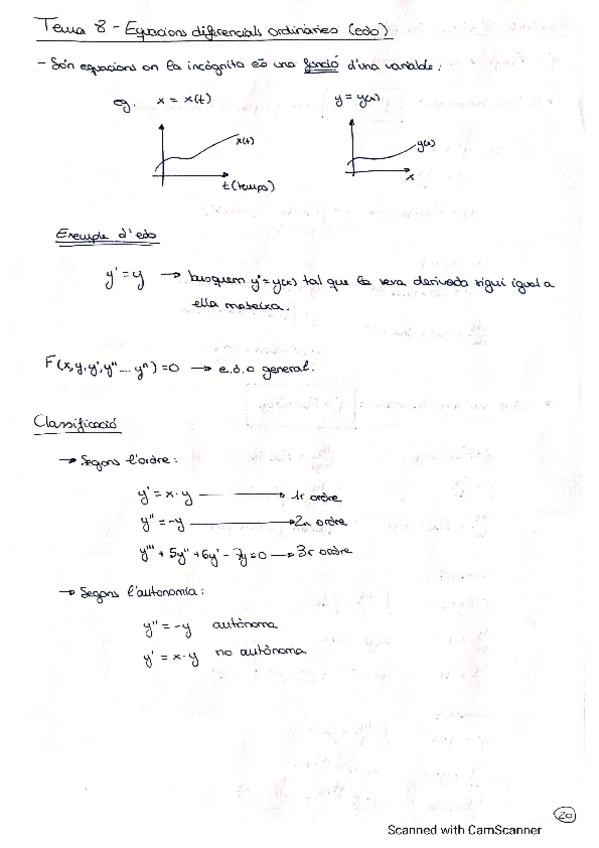 Tema 8 - Equacions diferencials ordinàries (edo)
- Són equacions on la incògnita és una funció d'una variable:
eg. x = x(t)    y = y(x)
x(t)    y(x)
t (temps)    x
Exemple d'edo
y' = y → busquem y = y(x) tal que la seva derivada sigui igual a
ella mateixa.
F(x,y,y',y''.... yⁿ) = 0 → e.d.o general.
Classificació
→ Segons l'ordre:
y' = x·y → 1r ordre
y'' = -y → 2n ordre
y''' + 5y'' + 6y' - 7y = 0 → 3r ordre
→ Segons l'autonomía:
y'' = -y autònoma
y' = x·y no autònoma
20
Scanned with CamScanner